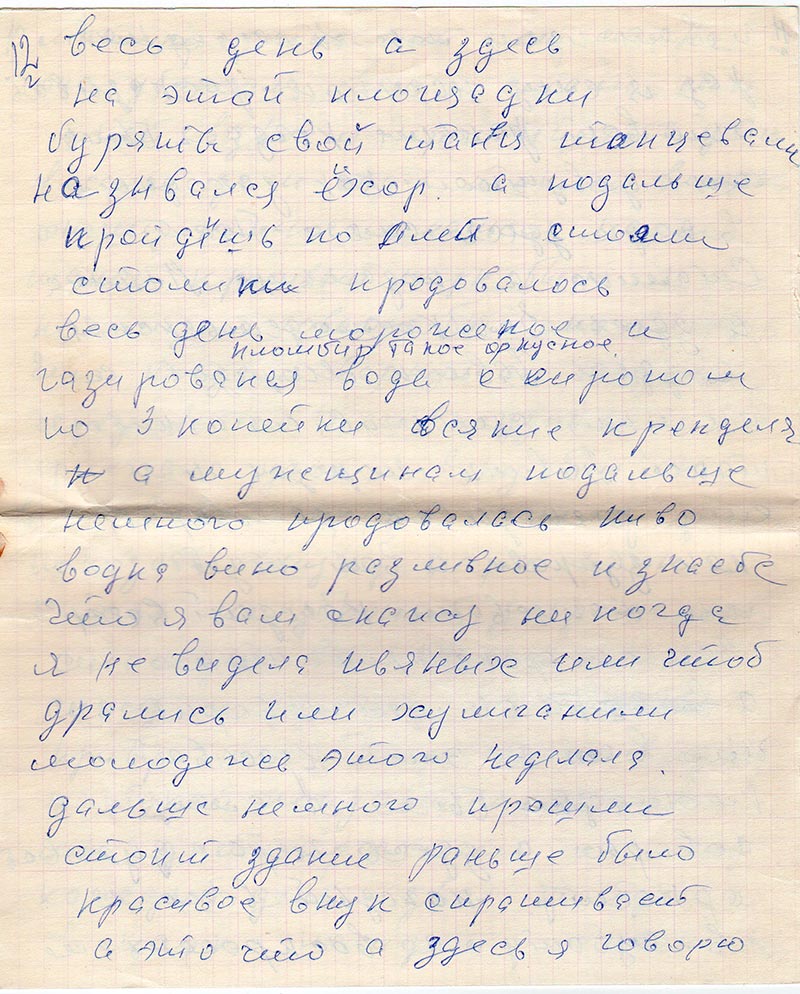 12
весь день а здесь
на этой площадки
буряты свой танц танцевали
назывался ёхор. а подальше
пройдёшь по Алеи стояли
столики продовалось
весь день мороженое и
пломбир такое вкусное.
газированая вода с сиропом
по 3 копейки всякие кренделя
а мужещинам подальше
немного продовалась пиво
водка вино разливное и знаете
что я вам скажу ни когда
я не видела пвяных или чтоб
дрались или хулиганили
молодеже этого неделала.
дальще немного прошли
стоит здание раньще было
красивое внук спрашивает
а это что а здесь я говорю